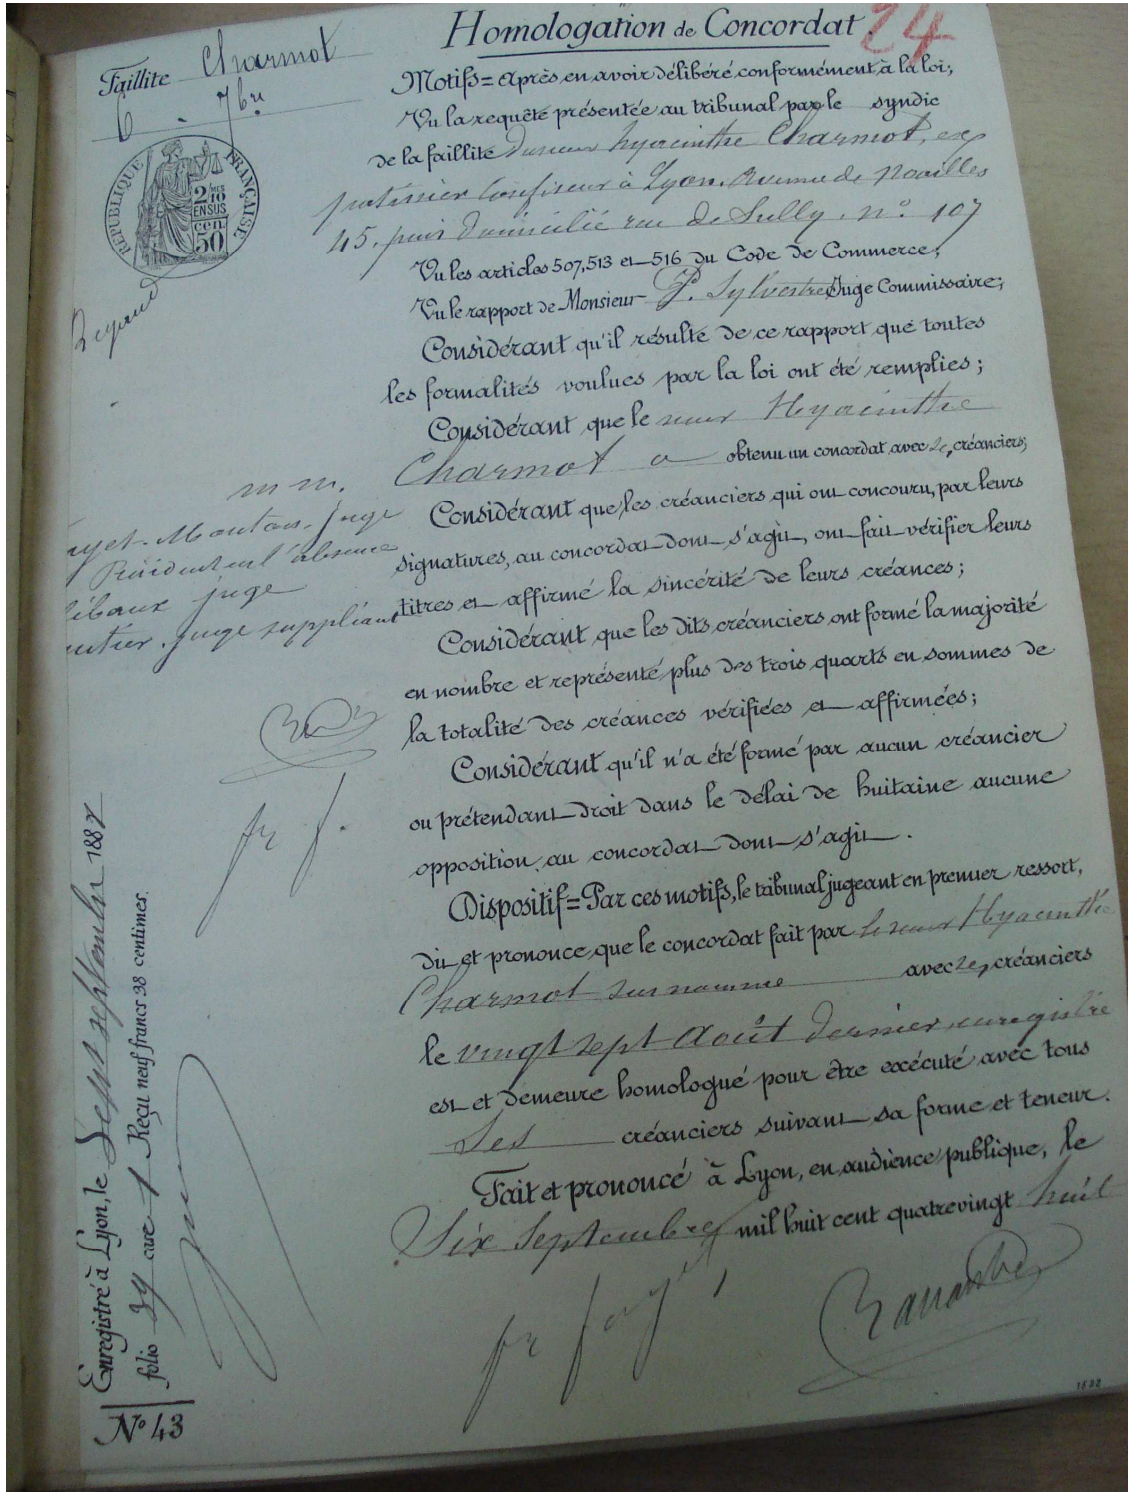 Homologation de Concordat.
24
Faillite Charmot
6. 7bre
RÉPUBLIQUE FRANÇAISE
2/10
EN SUS
50
cen.
Motifs = Après en avoir délibéré conformément à la loi;
Vu la requête présentée au tribunal par le syndic
de la faillite du sieur Hyacinthe Charmot, ex
patissier Confiseur à Lyon, Avenue de Noailles
45, puis domicilié rue de Sully, n° 107
Vu les articles 507, 513 et 516 du Code de Commerce,
Vu le rapport de Monsieur P. Sylvestre Juge Commissaire;
Considérant qu'il résulte de ce rapport que toutes
les formalités voulues par la loi ont été remplies;
Considérant que le sieur Hyacinthe
Charmot a obtenu un concordat avec ses créanciers;
Considérant que les créanciers qui ont concouru, par leurs
signatures, au concordat dont s'agit, ont fait vérifier leurs
titres et affirmé la sincérité de leurs créances;
Considérant que les dits créanciers ont formé la majorité
en nombre et représenté plus des trois quarts en sommes de
la totalité des créances vérifiées et affirmées;
Considérant qu'il n'a été formé par aucun créancier
ou prétendant droit dans le délai de huitaine aucune
opposition au concordat dont s'agit.
Dispositif = Par ces motifs, le tribunal jugeant en premier ressort,
dit et prononce que le concordat fait par le sieur Hyacinthe
Charmot susnommé avec ses créanciers
le vingt sept Août dernier enregistré
est et demeure homologué pour être exécuté avec tous
ses créanciers suivant sa forme et teneur.
Fait et prononcé à Lyon, en audience publique, le
Six Septembre mil huit cent quatre vingt huit
M M.
Mouton, juge
Président en l'absence
juge
juge suppléant
Enregistré à Lyon, le Sept septembre 188
folio 39 case 1 Reçu neuf francs 38 centimes.
N° 43
1532